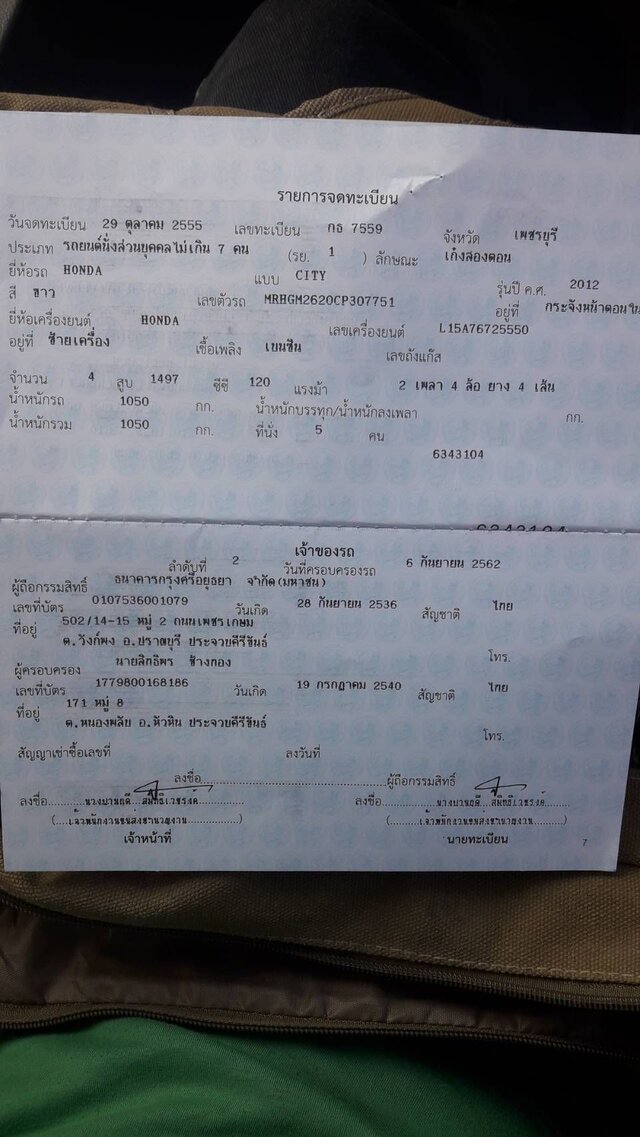 รายการจดทะเบียน
วันจดทะเบียน 29 ตุลาคม 2555 เลขทะเบียน กธ 7559 จังหวัด เพชรบุรี
ประเภท รถยนต์นั่งส่วนบุคคลไม่เกิน 7 คน (รย. 1 ) ลักษณะ เก๋งสองตอน
ยี่ห้อรถ HONDA แบบ CITY รุ่นปี ค.ศ. 2012
สี ขาว เลขตัวรถ MRHGM2620CP307751 อยู่ที่ กระจังหน้าตอนใน
ยี่ห้อเครื่องยนต์ HONDA เลขเครื่องยนต์ L15A76725550
อยู่ที่ ซ้ายเครื่อง เชื้อเพลิง เบนซิน เลขถังแก๊ส
จำนวน 4 สูบ 1497 ซีซี 120 แรงม้า 2 เพลา 4 ล้อ ยาง 4 เส้น
น้ำหนักรถ 1050 กก. น้ำหนักบรรทุก/น้ำหนักลงเพลา กก.
น้ำหนักรวม 1050 กก. ที่นั่ง 5 คน
6343104
6343104
เจ้าของรถ
ลำดับที่ 2 วันที่ครอบครองรถ 6 กันยายน 2562
ผู้ถือกรรมสิทธิ์ ธนาคารกรุงศรีอยุธยา จำกัด(มหาชน)
เลขที่บัตร 0107536001079 วันเกิด 28 กันยายน 2536 สัญชาติ ไทย
ที่อยู่ 502/14-15 หมู่ 2 ถนนเพชรเกษม
ต.วังก์พง อ.ปราณบุรี ประจวบคีรีขันธ์
โทร.
ผู้ครอบครอง นายสิทธิพร ช้างทอง
เลขที่บัตร 1779800168186 วันเกิด 19 กรกฎาคม 2540 สัญชาติ ไทย
ที่อยู่ 171 หมู่ 8
ต.หนองพลับ อ.หัวหิน ประจวบคีรีขันธ์
โทร.
สัญญาเช่าซื้อเลขที่ ลงวันที่
ลงชื่อ ผู้ถือกรรมสิทธิ์
ลงชื่อ ลงชื่อ
(เจ้าพนักงานขนส่งชำนาญงาน) (เจ้าพนักงานขนส่งชำนาญงาน)
เจ้าหน้าที่ นายทะเบียน
7